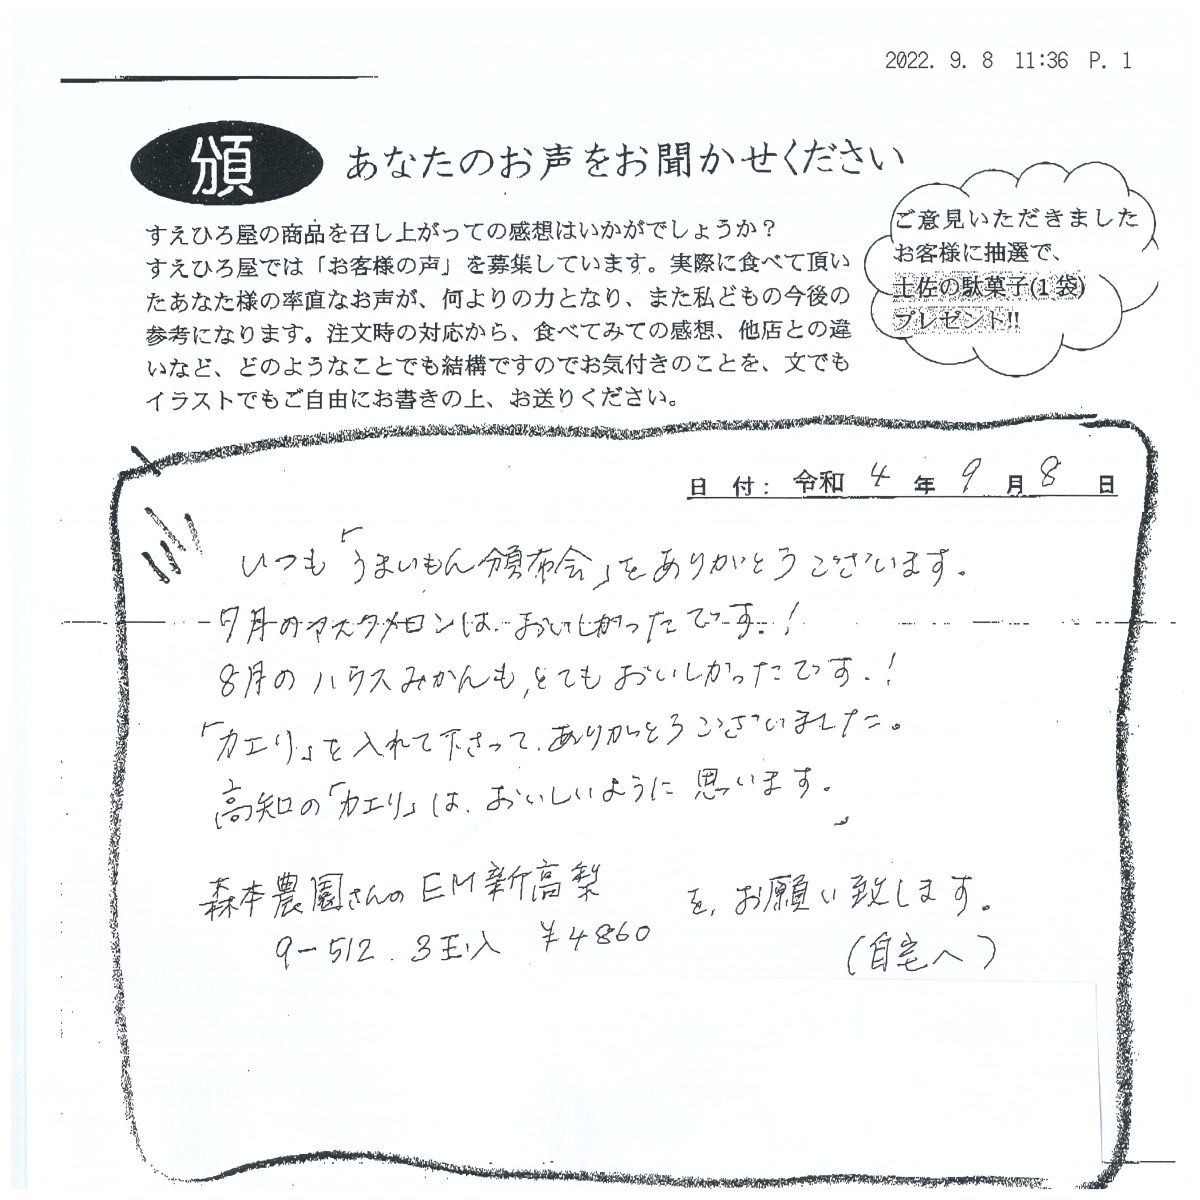 2022. 9. 8 11:36 P. 1
頒 あなたのお声をお聞かせください
すえひろ屋の商品を召し上がっての感想はいかがでしょうか？
すえひろ屋では「お客様の声」を募集しています。実際に食べて頂い
たあなた様の率直なお声が、何よりの力となり、また私どもの今後の
参考になります。注文時の対応から、食べてみての感想、他店との違
いなど、どのようなことでも結構ですのでお気付きのことを、文でも
イラストでもご自由にお書きの上、お送りください。
ご意見いただきました
お客様に抽選で、
土佐の駄菓子(1袋)
プレゼント!!
日 付： 令和 4 年 9 月 8 日
いつも「うまいもん頒布会」をありがとうございます。
7月のマスクメロンは、おいしかったです。!
8月のハウスみかんも、とてもおいしかったです。!
「カエリ」を入れて下さって、ありがとうございました。
高知の「カエリ」は、おいしいように思います。
森本農園さんのEM新高梨 を、お願い致します。
9-512. 3玉入 ¥4860 (自宅へ)